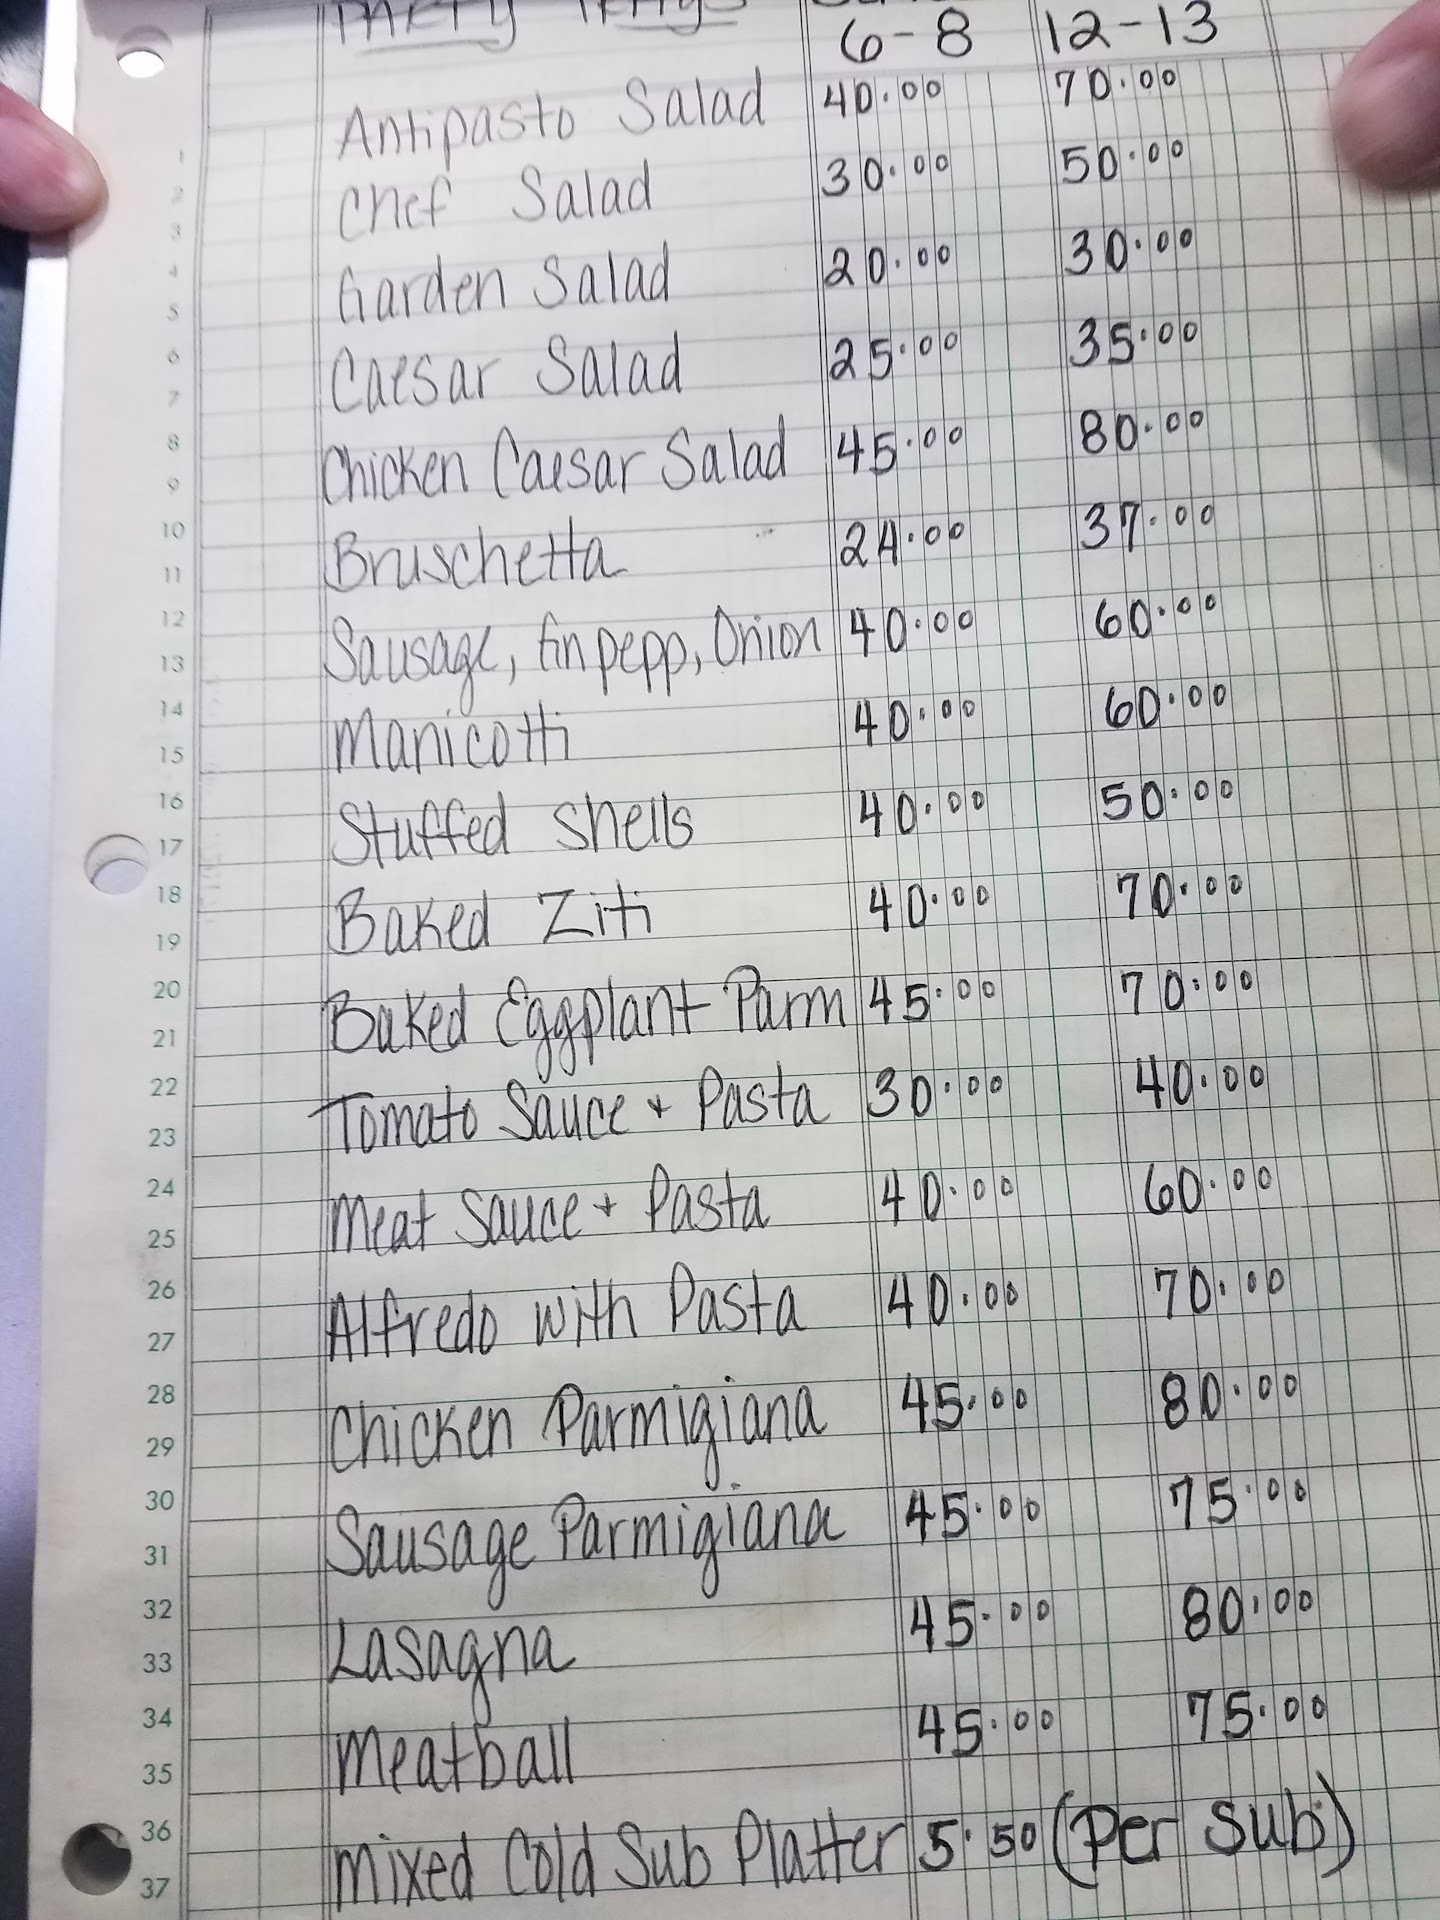 Party Trays
6-8 12-13
Antipasto Salad 40.00 70.00
Chef Salad 30.00 50.00
Garden Salad 20.00 30.00
Caesar Salad 25.00 35.00
Chicken Caesar Salad 45.00 80.00
Bruschetta 24.00 37.00
Sausage, Gn pepp, Onion 40.00 60.00
Manicotti 40.00 60.00
Stuffed Shells 40.00 50.00
Baked Ziti 40.00 70.00
Baked Eggplant Parm 45.00 70.00
Tomato Sauce + Pasta 30.00 40.00
Meat Sauce + Pasta 40.00 60.00
Alfredo with Pasta 40.00 70.00
Chicken Parmigiana 45.00 80.00
Sausage Parmigiana 45.00 75.00
Lasagna 45.00 80.00
Meatball 45.00 75.00
Mixed Cold Sub Platter 5.50 (Per Sub)
1
2
3
4
5
6
7
8
9
10
11
12
13
14
15
16
17
18
19
20
21
22
23
24
25
26
27
28
29
30
31
32
33
34
35
36
37